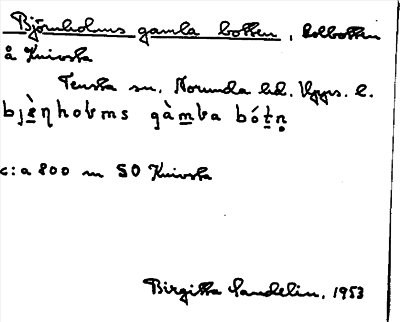 Björnholms gamla botten, kolbotten
å Knivsta
Tensta sn. Norunda hd. Upps. l.
bjè̱ŋhoḷms gàm̱ḷa bót̠ṇ
c:a 800 m SO Knivsta
Birgitta Sandelin. 1953